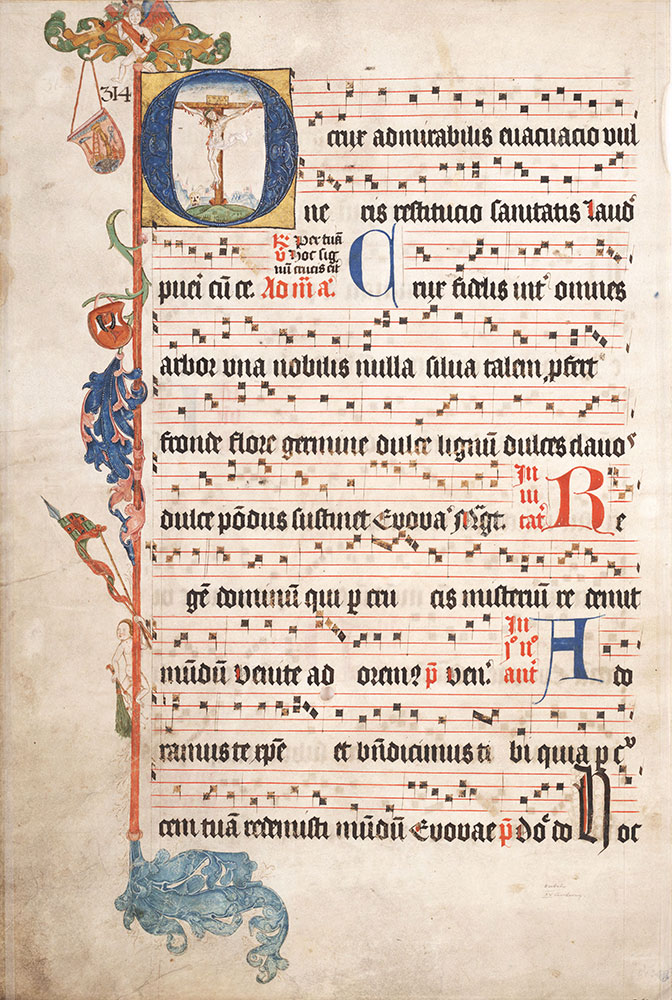 314
O crux admirabilis euacuacio vul
ne ris restitucio sanitatis Laudꝰ
R̄ Per tuā
V̄ hoc sig
nū crucis erit
pueri cū ce. Ad m̄ a. Crux fidelis intˀ omnes
arbor vna nobilis nulla silua talem ꝓfert
fronde flore germine dulce lignū dulces clauoˢ
dulce pōdus sustinet Euoua
In
ui
tatˀ
Re
gē dominū qui ꝑ cru cis misteriū re demit
mūdū Venite ad orem? p̄ Venˀ
In
antˀ
Ado
ramus te xp̄e et bn̄dicimus ti bi quia ꝑ cˢ
cem tuā redemisti mūdū Euouae p̄ Dō do Hoc